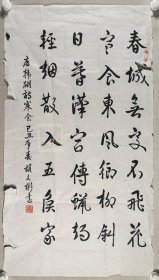 春城無處不飛花
寒食東風御柳斜
日暮漢宮傳蠟燭
輕烟散入五侯家
唐韓翃詩寒食 己丑年 胡文彬書